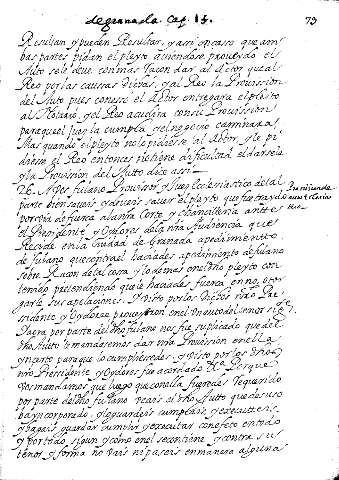 de granada. Cap. 14. 73
Resultan y pueden Resultar, y asi en caso que am
bas partes pidan el pleyto auiendose proueido el
Auto se le deue con mas raçon dar al Actor que al
Reo por las causas dichas, y al Reo la Prouission
del Auto pues con esso el Actor entregara el pleito
al Notario, y el Reo acudira con su Prouission
para que el Juez la cumpla y el negocio caminara
Mas quando el pleyto no le pidiesse al Actor, y le pi
diesse el Reo entonces no tiene dificultad el darsela
y la Prouision del Auto dice assi
26. A vos fulano Prouisor y Juez ecclesiastico de tal
parte bien saueis y deueis sauer el pleyto que fue traydo
por via de fuerça a la nra Corte y chancilleria ante
el Presidente y Oydores de la nra Audiencia que
Reside en la Ciudad de Granada a pedimiento
de fulano que contra el haciades a pedimiento de fulano
sobre Raçon de tal cosa y lo demas en el dho pleyto con
tenido pretendiendo que le haciades fuerça en no otor
garle sus apelaciones. Y visto por los Dichos nros Pre
sidente y Oydores proueyeron en el un auto del tenor sigte
Y aora por parte del dho fulano nos fue suplicado que del
dho Auto le mandasemos dar nra Prouission en ella
ynserto para que lo cumpliesedes, y visto por los dhos
nro Presidente y Oydores fue acordado etta. Porque
vos mandamos que luego que con ella fueredes Requerido
por parte del dho fulano veais el dho Auto que de suso
ba yncorporado, y le guardeis cumplais, y executeis
y hagais guardar cumplir y executar con efeto en todo
y por todo, sigun y como en el se contiene y contra su
tenor y forma no vais ni paseis en manera alguna